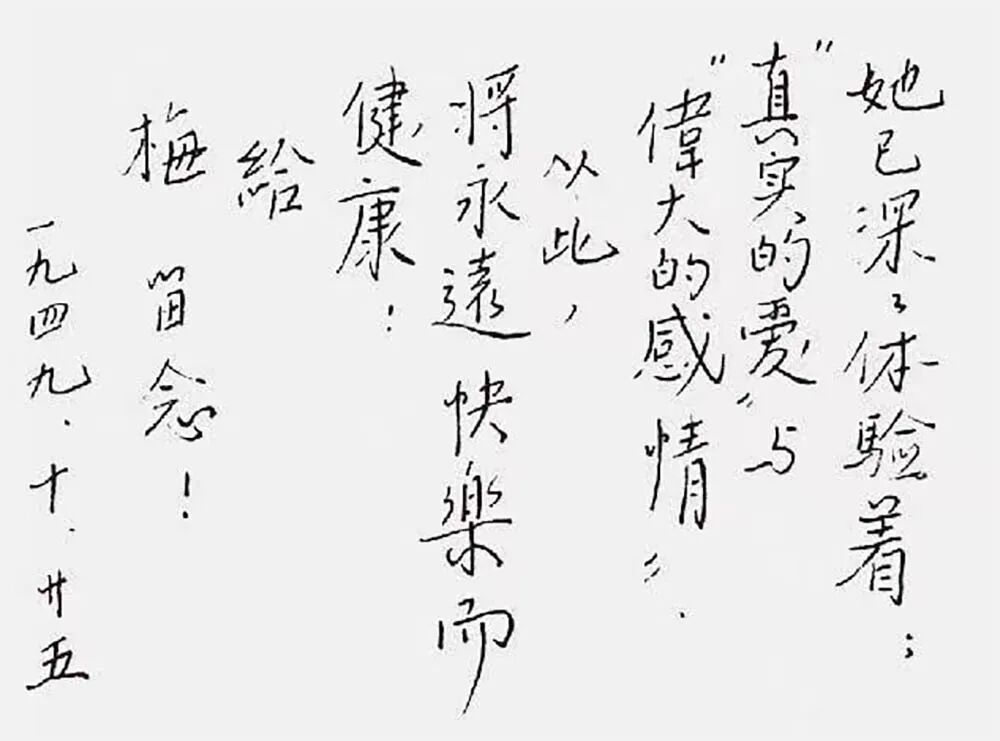 她已深〻体驗着；
“真实的爱”与
“偉大的感情”．
以此，
将永遠快樂而
健康！
給
梅 留念！
一九四九．十．廿五